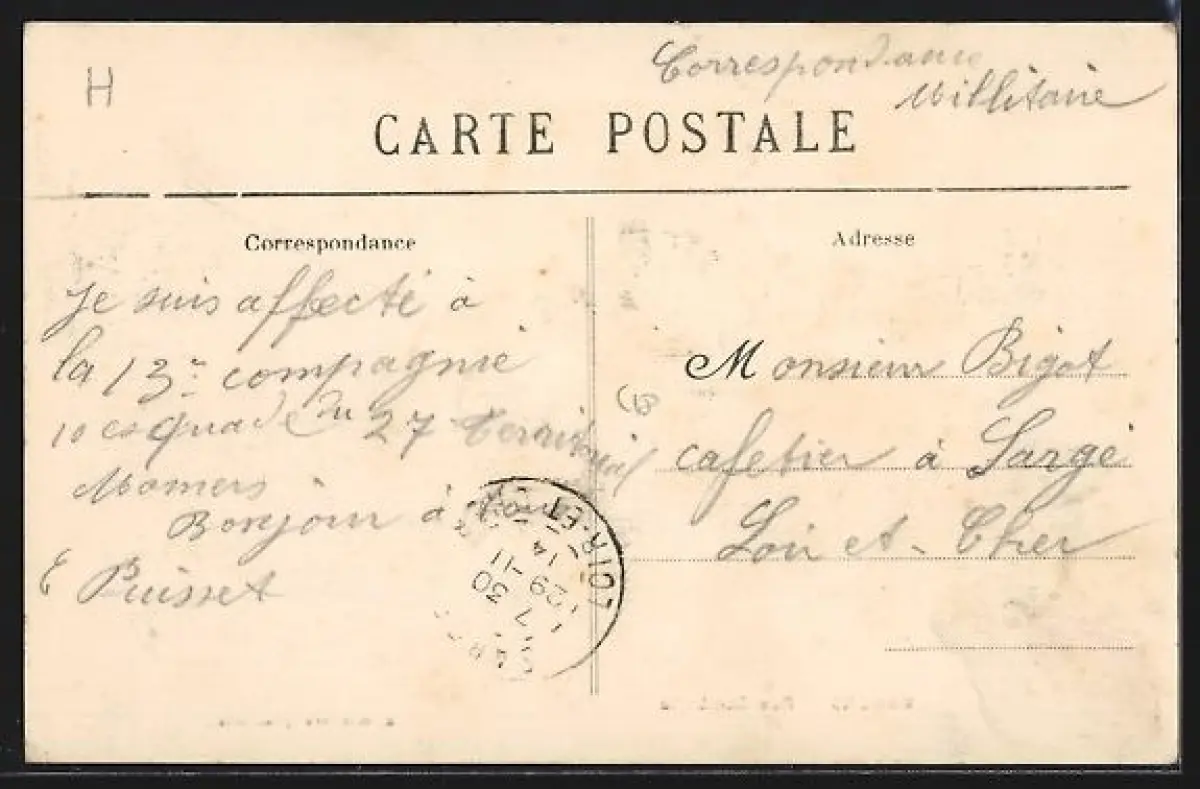 H
Correspondance
Millitaire
CARTE POSTALE
Correspondance
Adresse
Je suis affecté à
la 13e compagnie
10 esquade du 27 Territorial
Mamers
Bonjour à tous
E Puisset
Monsieur Bigot
cafetier à Sargé
Loir et-Cher
17 30
29-11
14
LOIR-ET-